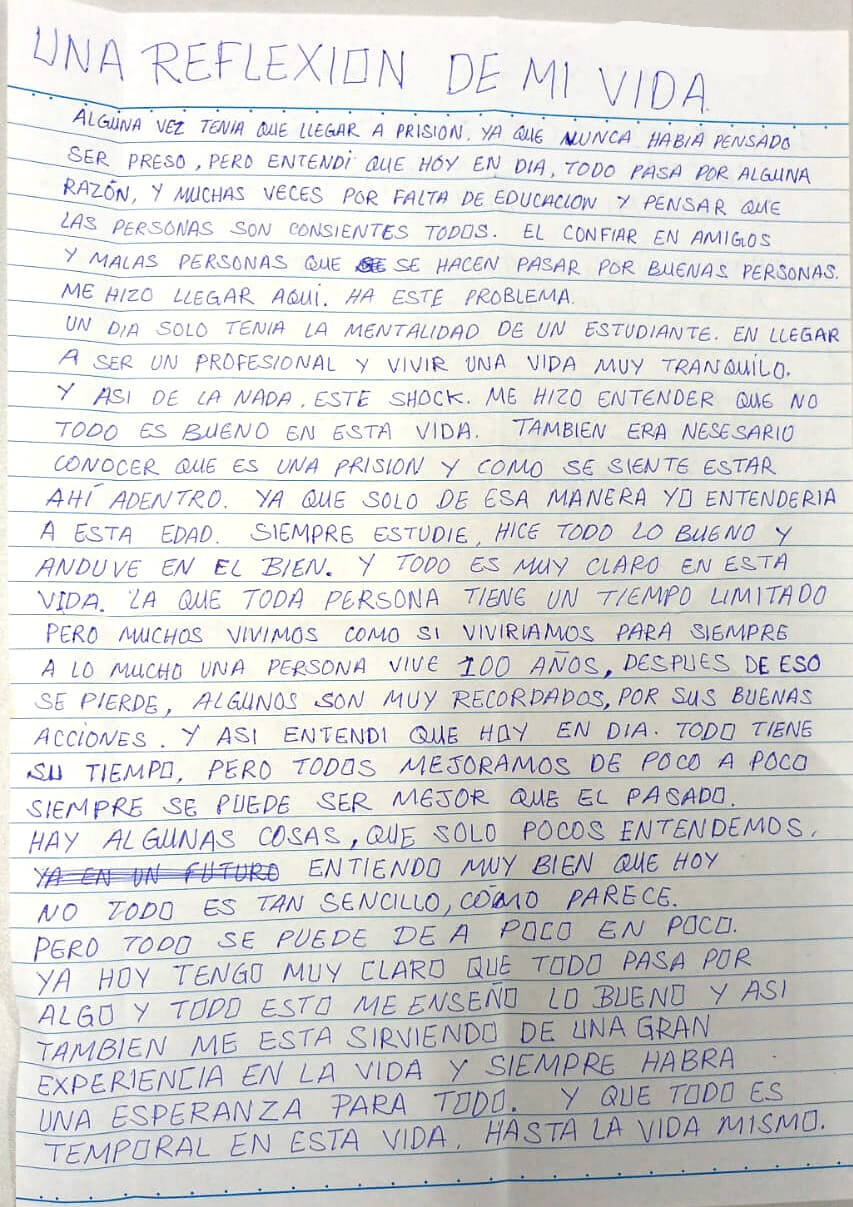 UNA REFLEXION DE MI VIDA
ALGUNA VEZ TENIA QUE LLEGAR A PRISION. YA QUE NUNCA HABIA PENSADO
SER PRESO, PERO ENTENDI QUE HOY EN DIA, TODO PASA POR ALGUNA
RAZÓN, Y MUCHAS VECES POR FALTA DE EDUCACION Y PENSAR QUE
LAS PERSONAS SON CONSIENTES TODOS. EL CONFIAR EN AMIGOS
Y MALAS PERSONAS QUE SE HACEN PASAR POR BUENAS PERSONAS.
ME HIZO LLEGAR AQUI. HA ESTE PROBLEMA.
UN DIA SOLO TENIA LA MENTALIDAD DE UN ESTUDIANTE. EN LLEGAR
A SER UN PROFESIONAL Y VIVIR UNA VIDA MUY TRANQUILO.
Y ASI DE LA NADA, ESTE SHOCK. ME HIZO ENTENDER QUE NO
TODO ES BUENO EN ESTA VIDA. TAMBIEN ERA NESESARIO
CONOCER QUE ES UNA PRISION Y COMO SE SIENTE ESTAR
AHÍ ADENTRO. YA QUE SOLO DE ESA MANERA YO ENTENDERIA
A ESTA EDAD. SIEMPRE ESTUDIE, HICE TODO LO BUENO Y
ANDUVE EN EL BIEN. Y TODO ES MUY CLARO EN ESTA
VIDA. LA QUE TODA PERSONA TIENE UN TIEMPO LIMITADO
PERO MUCHOS VIVIMOS COMO SI VIVIRIAMOS PARA SIEMPRE
A LO MUCHO UNA PERSONA VIVE 100 AÑOS, DESPUES DE ESO
SE PIERDE, ALGUNOS SON MUY RECORDADOS, POR SUS BUENAS
ACCIONES. Y ASI ENTENDI QUE HOY EN DIA. TODO TIENE
SU TIEMPO, PERO TODOS MEJORAMOS DE POCO A POCO
SIEMPRE SE PUEDE SER MEJOR QUE EL PASADO.
HAY ALGUNAS COSAS, QUE SOLO POCOS ENTENDEMOS.
YA EN UN FUTURO ENTIENDO MUY BIEN QUE HOY
NO TODO ES TAN SENCILLO, COMO PARECE.
PERO TODO SE PUEDE DE A POCO EN POCO.
YA HOY TENGO MUY CLARO QUE TODO PASA POR
ALGO Y TODO ESTO ME ENSEÑO LO BUENO Y ASI
TAMBIEN ME ESTA SIRVIENDO DE UNA GRAN
EXPERIENCIA EN LA VIDA Y SIEMPRE HABRA
UNA ESPERANZA PARA TODO. Y QUE TODO ES
TEMPORAL EN ESTA VIDA, HASTA LA VIDA MISMO.